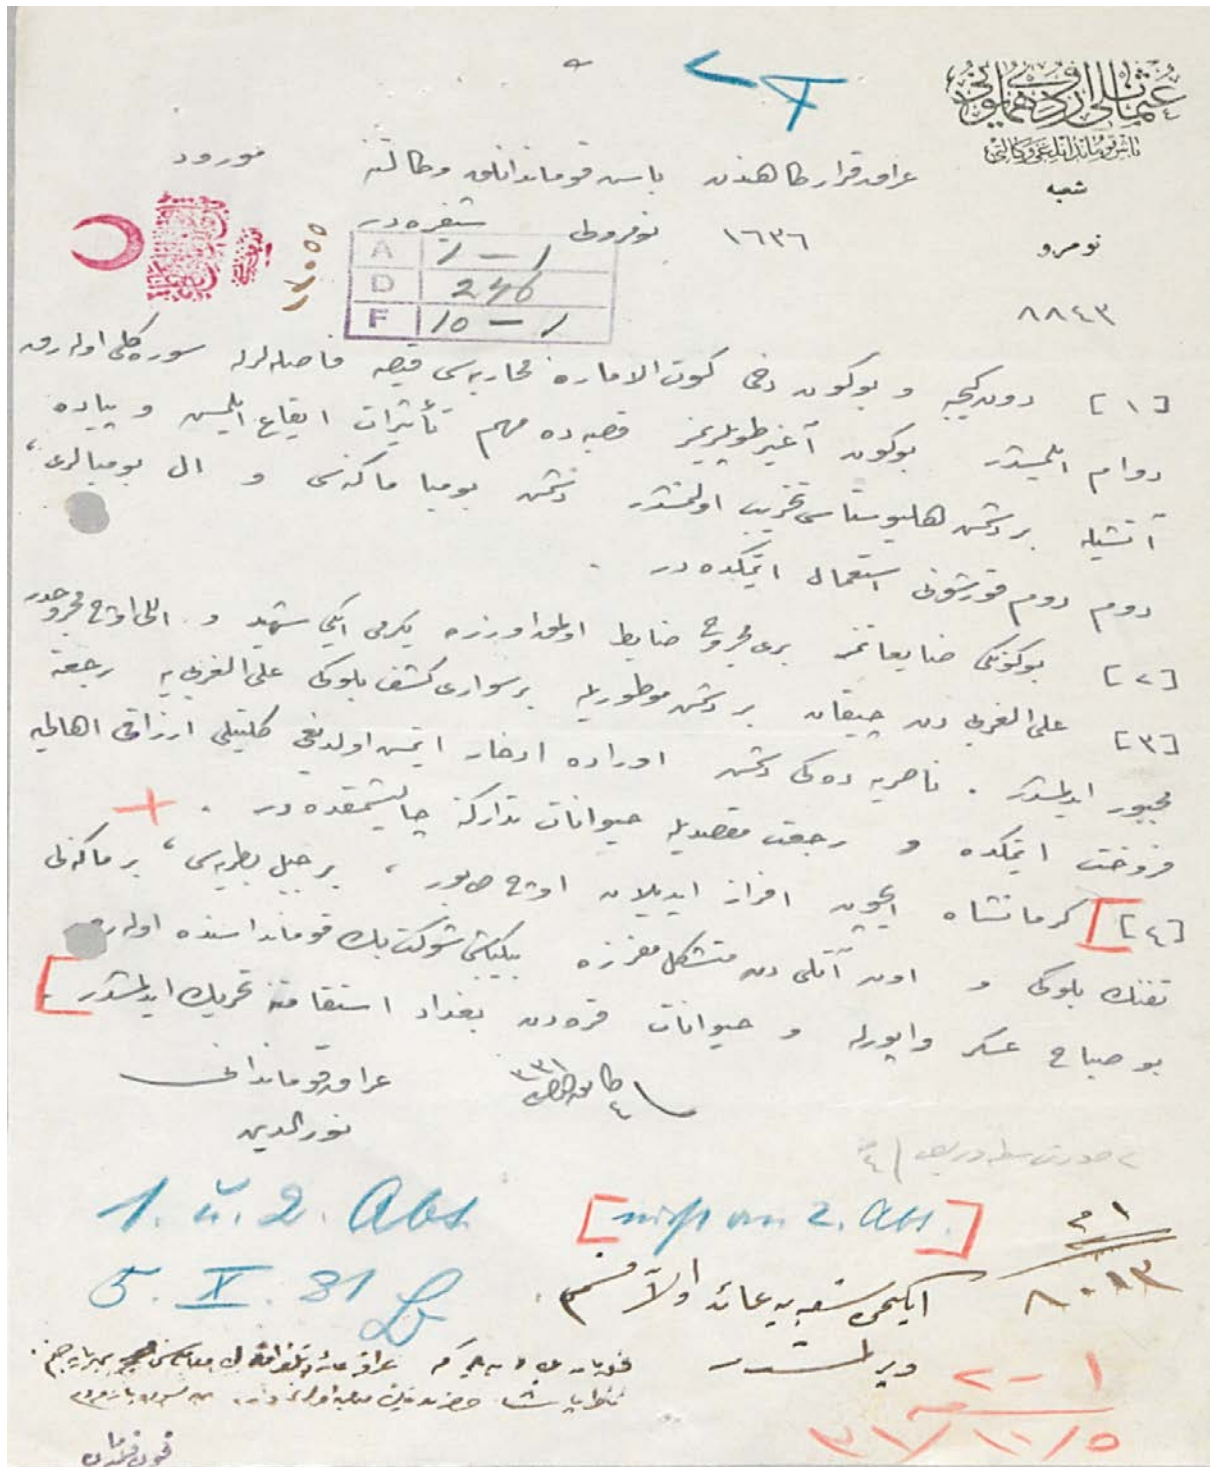 عثمانلی اردوی همایونی
باش قوماندانلغی وکالتی
شعبه
نومرو
٨٨٤٣
مورود
عراق قرارکاهندن باش قوماندانلق وکالتنه
١٦٣٦ نومرولی شیفره در
A 1-1
D 246
F 10-1
[١] دون کیجه و بوکون دخی کوت الاماره محاربه سی قیصه فاصله لرله سوره کلی اوله رق
دوام ایتمشدر بوکون آغیر طوپلریمز قصبه ده مهم تأثیرات ایقاع ایلمش و پیاده
آتشیله بر دشمن هلیوستاسی تخریب اولنمشدر دشمن بومبا ماکنه سی و ال بومبالری،
دوم دوم قورشونی استعمال ایتمکده در .
[٢] بوکونکی ضایعاتمز بری مجروح ضابط اولمق اوزره یکرمی ایکی شهید و اللی اوچ مجروحدر
[٣] علی الغربی دن چیقان بر دشمن موطوریله بر سواری کشف بلوکی علی الغربی یه رجعته
مجبور ایدلمشدر . ناصریه ده کی دشمن اوراده ادخار ایتمش اولدیغی کلیتلی ارزاقی اهالی یه
فروخت ایتمکده و رجعت مقصدیله حیوانات تدارکنه چالیشمقده در .
[٤] کرمانشاه ایچون افراز ایدیلن اوچ طابور ، بر جبل بطریه سی ، بر ماکنه لی
تفنک بلوکی و اون آتلی دن متشکل مفرزه بیکباشی شوکت بک قومانداسنده اوله رق
بو صباح عسکر واپورله و حیوانات قره دن بغداد استقامتنه تحریک ایدلمشدر
عراق قوماندانی
نورالدین
1. u. 2. Abt.
5. X. 31
2. Abt.
ایکنجی شعبه یه عائد
ویرلمشدر
٨٠١٣
١-٢
٣١/١٠/٥